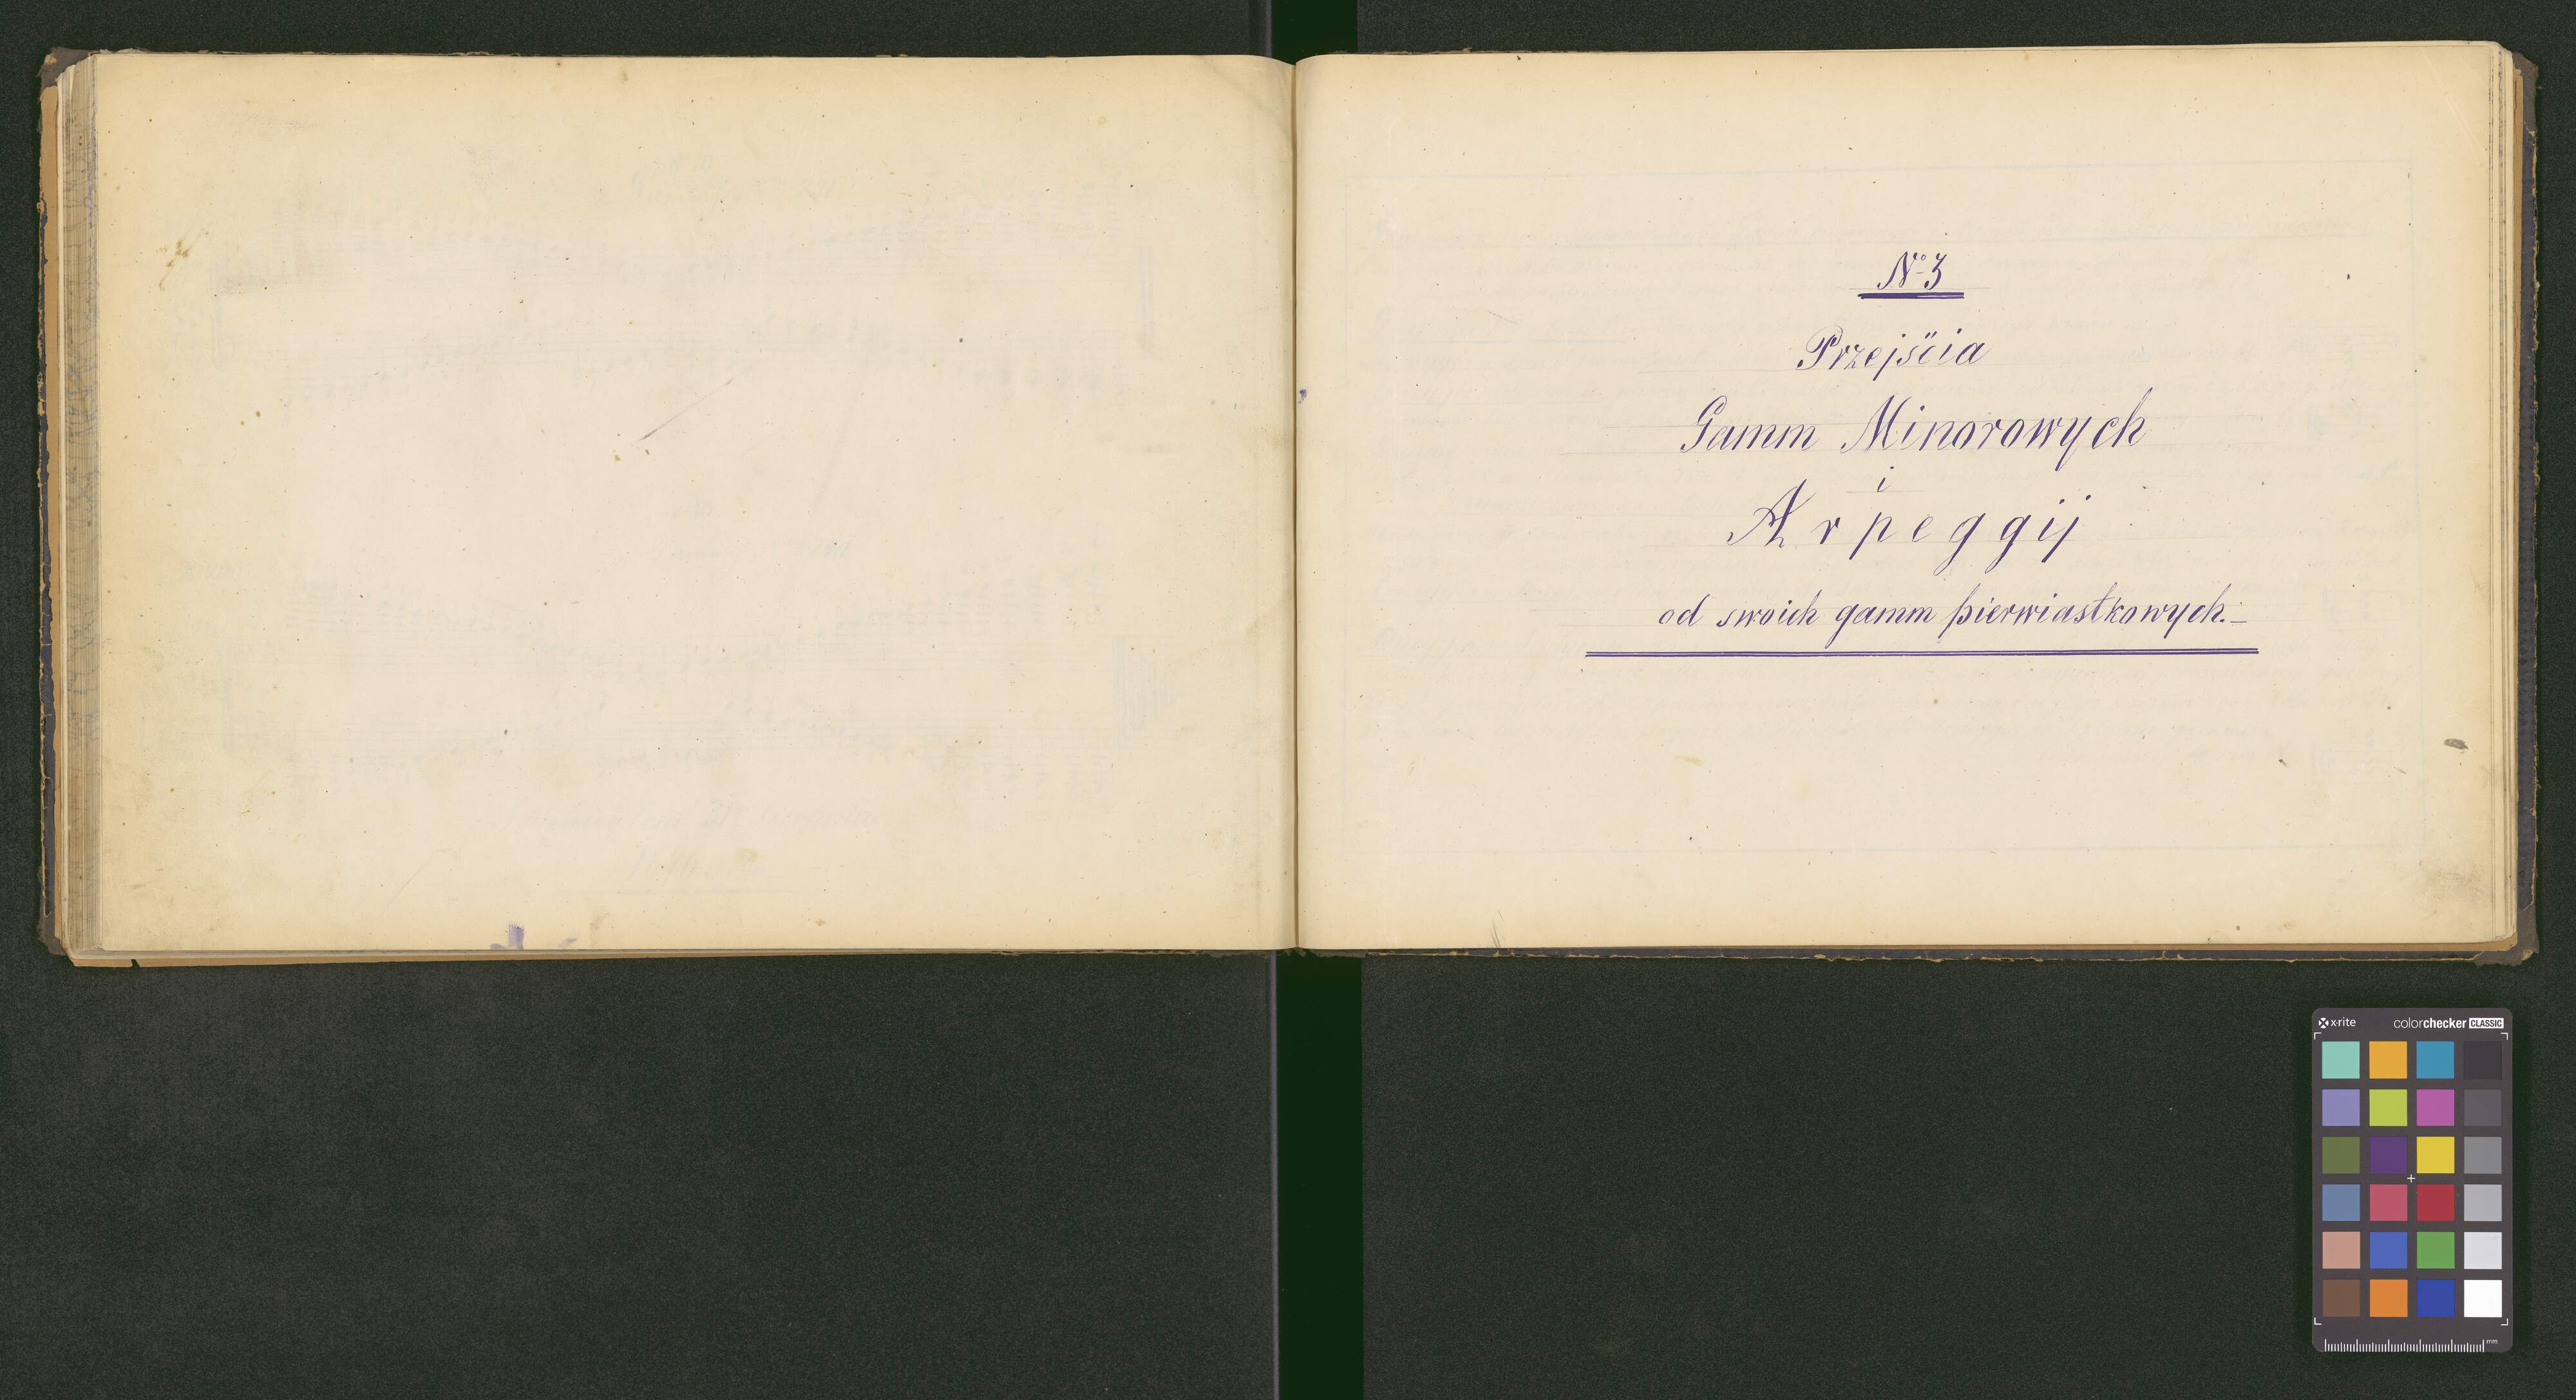 № 3
Przejścia
Gamm Minorowych
i
Arpeggij
od swoich gamm pierwiastkowych.
x-rite colorchecker CLASSIC
mm